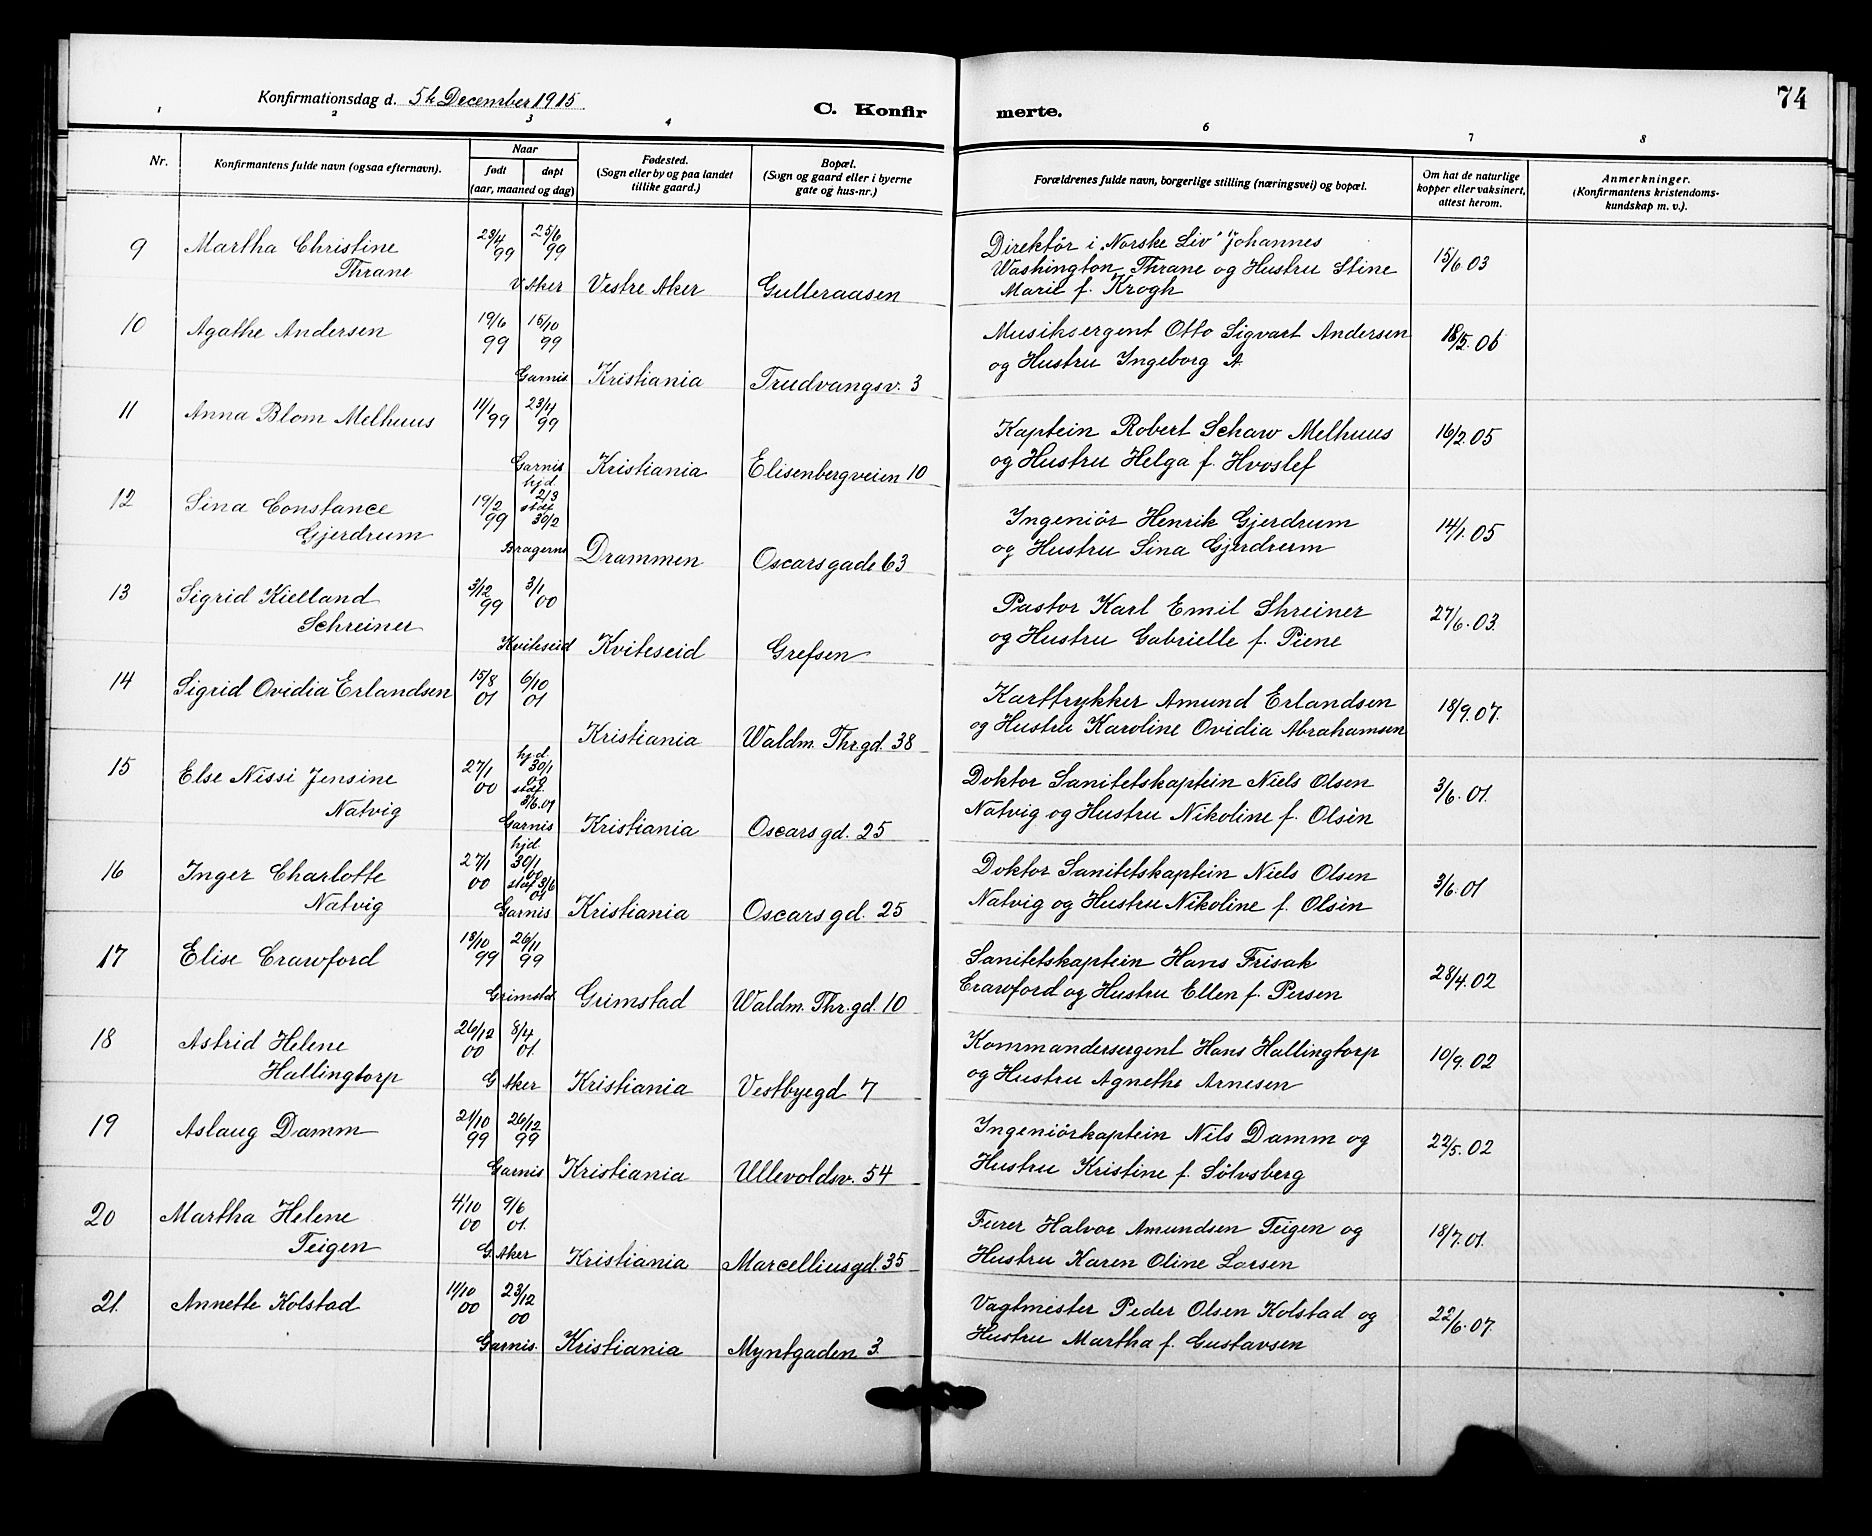 74
Konfirmationsdag d. 5te December 1915
C. Konfirmerte.
1 2 3 4 6 7 8
Nr.
Konfirmantens fulde navn (ogsaa efternavn).
Naar
født
døpt
(aar, maaned og dag)
Fødested.
(Sogn eller by og paa landet
tillike gaard.)
Bopæl.
(Sogn og gaard eller i byerne
gate og hus-nr.)
Forældrenes fulde navn, borgerlige stilling (næringsvei) og bopæl.
Om hat de naturlige
kopper eller vaksinert,
attest herom.
Anmerkninger.
(Konfirmantens kristendoms-
kundskap m. v.).
9 Martha Christine 23/4 99 25/6 99 Direktör i "Norske Liv" Johannes 15/6 03
Thrane V Aker Vestre Aker Gulleraasen Washington Thrane og Hustru Stine
Marie f. Krogh
10 Agathe Andersen 19/6 99 15/10 99 Musiksergent Otto Sigvart Andersen 18/5. 06
Garnis Kristiania Trudvangsv. 3 og Hustru Ingeborg A
11 Anna Blom Melhuus 11/1 99 23/4 99 Kaptein Robert Schaw Melhuus 16/2. 05
Garnis Kristiania Elisenbergveien 10 og Hustru Helga f. Hvoslef
12 Sina Constance 19/2 99 hjd. 2/3 stdf 30/2 Ingeniör Henrik Gjerdrum 14/1. 05
Gjerdrum Bragernes Drammen Oscarsgade 63 og Hustru Sina Gjerdrum
13 Sigrid Kielland 3/12 99 3/1 00 Pastor Karl Emil Shreiner 27/6. 03.
Schreiner Kviteseid Kviteseid Grefsen og Hustru Gabrielle f. Piene
14 Sigrid Ovidia Erlandsen 15/8 01 6/10 01 Karttrykker Amund Erlandsen 18/9. 07.
Kristiania Waldm. Thr.gd. 38 og Hustru Karoline Ovidia Abrahamsen
15 Else Nissi Jensine 27/1 00 hjd. 30/1 00 stdf. 3/6.01 Doktor Sanitetskaptein Niels Olsen 3/6. 01.
Natvig Garnis Kristiania Oscars gd. 25 Natvig og Hustru Nikoline f. Olsen
16 Inger Charlotte 27/1 00 hjd. 30/1 00 stdf 3/6 01 Doktor Sanitetskaptein Niels Olsen 3/6. 01
Natvig Garnis Kristiania Oscars gd. 25 Natvig og Hustru Nikoline f. Olsen
17 Elise Crawford 18/10 99 26/11 99 Sanitetskaptein Hans Frisak 28/4. 02
Grimstad Grimstad Waldm. Thr.gd. 10 Crawford og Hustru Ellen f. Persen
18 Astrid Helene 26/12 00 8/4 01. Kommandersergent Hans Hallingtorp 10/9. 02
Hallingtorp G Aker Kristiania Vestbyegd 7 og Hustru Agnethe Arnesen
19 Aslaug Damm 21/10 99 26/12 99 Ingeniörkaptein Nils Damm og 22/5. 02
Garnis Kristiania Ullevoldsv. 54 Hustru Kristine f. Sölvsberg
20 Martha Helene 4/10 00 9/6 01. Furer Halvor Amundsen Teigen og 18/7. 01.
Teigen G. Aker Kristiania Marcelliusgd. 35 Hustru Karen Oline Larsen
21. Annette Kolstad 11/10 00 23/12 00 Vagtmester Peder Olsen Kolstad og 22/6. 07.
Garnis. Kristiania Myntgaden 3. Hustru Martha f. Gustavsen